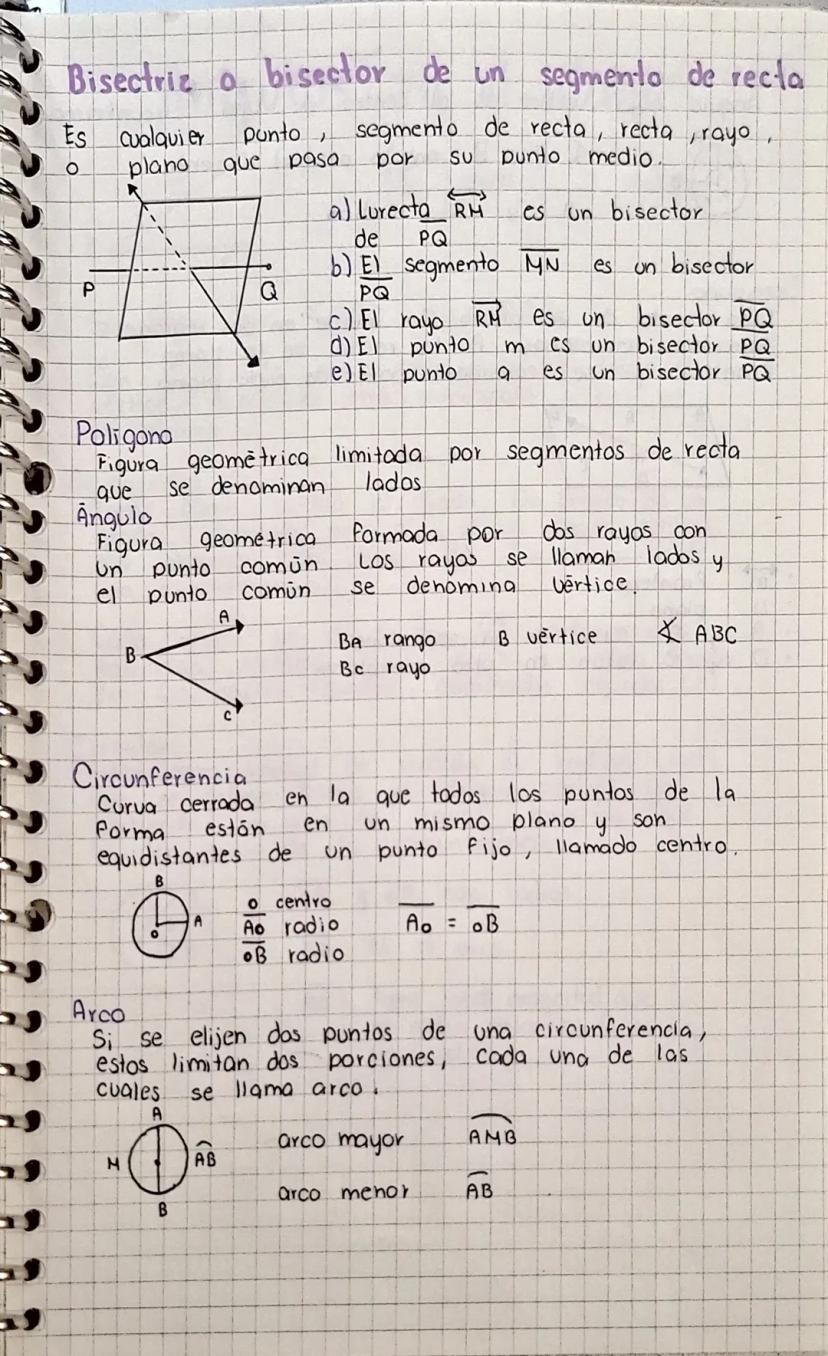 Bisectriz o bisector de un segmento de recta
Es cualquier punto, segmento de recta, recta, rayo,
o plano que pasa por su punto medio.
P
Q
a) Lurecta RM es un bisector
de PQ
b) El segmento MN es un bisector
PQ
c) El rayo RM es un bisector PQ
d) El punto m es un bisector PQ
e) El punto a es un bisector PQ
Poligono
Figura geométrica limitada por segmentos de recta
que se denominan lados
Ángulo
Figura geométrica formada por dos rayos con
un punto común. Los rayos se llaman lados y
el punto común se denomina vértice.
A
B
C
BA rango B vértice ∡ ABC
Bc rayo
Circunferencia
Curva cerrada en la que todos los puntos de la
forma están en un mismo plano y son
equidistantes de un punto fijo, llamado centro.
B
A
o
o centro
Ao radio Ao = oB
oB radio
Arco
Si se elijen dos puntos de una circunferencia,
estos limitan dos porciones, cada una de las
cuales se llama arco.
A
M
AB
B
arco mayor AMB
arco menor AB